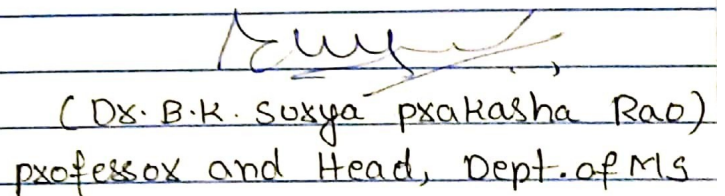 (Dr. B.K. Surya prakasha Rao)
professor and Head, Dept. of MS